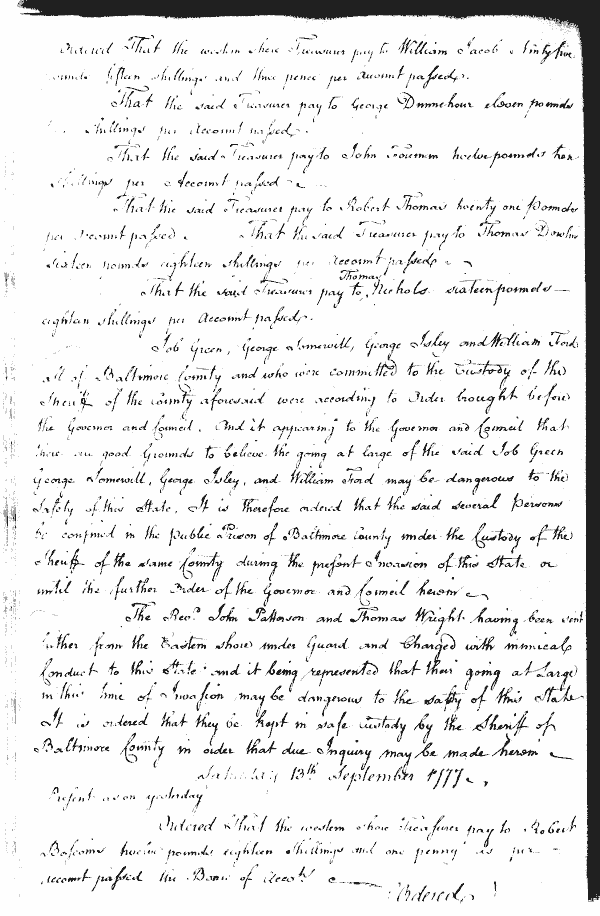 Ordered That the western shore Treasurer pay to William Jacob Ninty five
pounds fifteen shillings and three pence per Account passed.
That the said Treasurer pay to George Dunnehour eleven pounds
shillings per Account passed.
That the said Treasurer pay to John Foremm twelve pounds ten
shillings per Account passed
That the said Treasurer pay to Robert Thomas twenty one Pounds
per Account passed. That the said Treasurer pay to Thomas Dowlin
sixteen pounds eighteen shillings per Account passed
Thomas
That the said Treasurer pay to Nichols sixteen pounds —
eighteen shillings per Account passed.
Job Green, George Somervill, George Isley and William Ford
all of Baltimore County and who were committed to the Custody of the
Sheriff of the County aforesaid were according to Order brought before
the Governor and Council. And it appearing to the Governor and Council that
there are good Grounds to believe the going at large of the said Job Green
George Somervill, George Isley, and William Ford may be dangerous to the
Safety of this State. It is therefore ordered that the said several Persons
be confined in the public Prison of Baltimore County under the Custody of the
Sheriff of the same County during the present Invasion of this State or
until the further Order of the Governor and Council herein
The Revd. John Patterson and Thomas Wright having been sent
hither from the Eastern shore under Guard and Charged with inimical
Conduct to this State and it being represented that their going at Large
in this time of Invasion may be dangerous to the safty of this State
It is ordered that they be kept in safe custody by the Sheriff of
Baltimore County in order that due Inquiry may be made herein
Saturday 13th September 1777.
Present as on yesterday
Ordered That the western shore Treasurer pay to Robert
twelve pounds eighteen Shillings and one penny as per
account passed the Board of Accots
Ordered